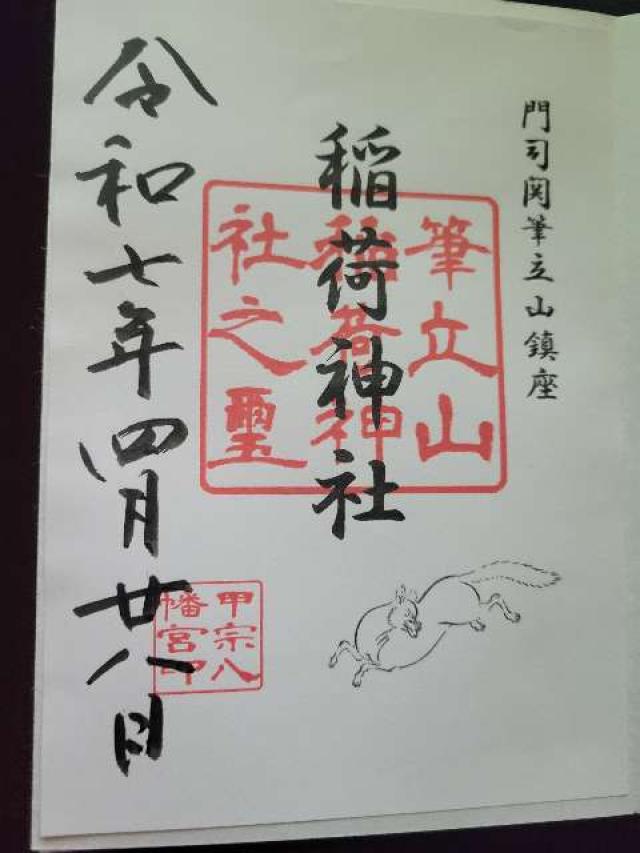 門司関筆立山鎮座
稲荷神社
筆立山
稲荷神
社之璽
令和七年四月廿八日
甲宗八
幡宮印